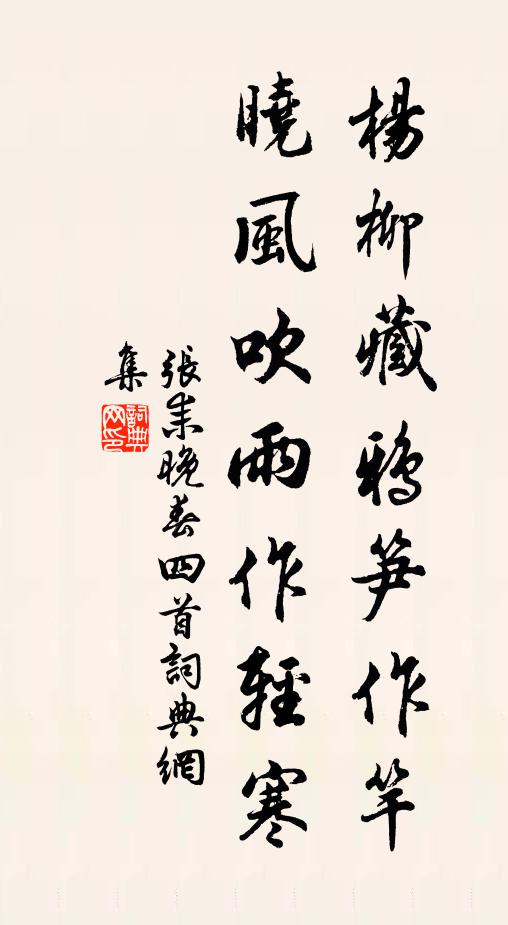 楊柳藏鴉笋作竿
曉風吹雨作輕寒
張耒晚春四首詞典網
集
詞典網印